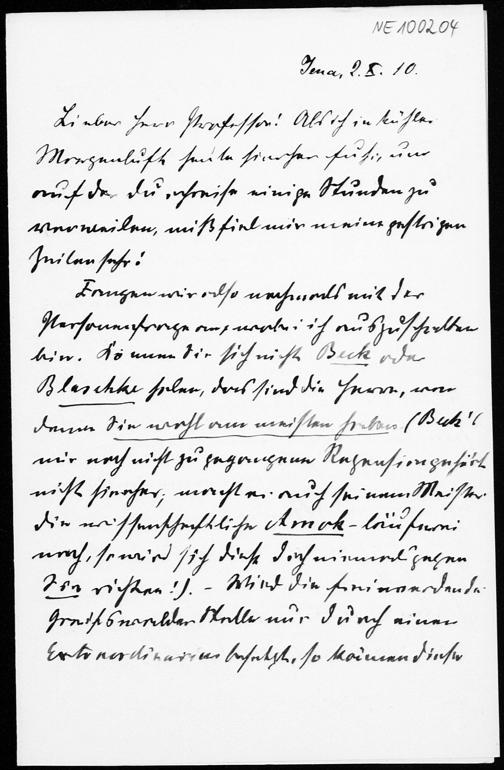 NE100204
Jena, 2. X. 10.
Lieber Herr Professor! Als ich in kühler
Morgenluft heute hierher fuhr, um
auf der Durchreise einige Stunden zu
verweilen, mißfiel mir meine gestrigen
Zeilen sehr!
Fangen wir also nochmals mit der
Personenfrage an, wobei ich auszuschalten
bin. Können Sie sich nicht Beck oder
Blaschke holen, das sind die Herren, von
denen Sie wohl am meisten haben (Beck's
mir noch nicht zugegangene Rezension gehört
nicht hierher; macht er auch seinem Meister
die wissenschaftliche Amok-läuferei
nach, so wird sich diese doch niemals gegen
Sie richten!). - Wird die freiwerdende
Greifswalder Stelle nur durch einen
Extraordinarius besetzt, so können diese